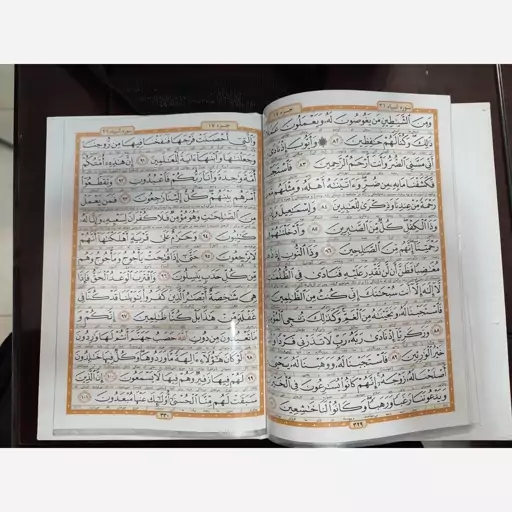 سوره انبیاء ٢١ جزء ١٧
وَمِنَ الشَّيَٰطِينِ مَن يَغُوصُونَ لَهُۥ وَيَعْمَلُونَ
ذَٰلِكَ وَكُنَّا لَهُمْ حَٰفِظِينَ ٨٢ وَأَيُّوبَ إِذْ نَادَىٰ
أَنِّي مَسَّنِيَ الضُّرُّ وَأَنتَ أَرْحَمُ الرَّٰحِمِينَ ٨٣ فَاسْتَجَبْنَا
فَكَشَفْنَا مَا بِهِۦ مِن ضُرٍّ وَءَاتَيْنَٰهُ أَهْلَهُۥ وَمِثْلَهُم
رَحْمَةً مِّنْ عِندِنَا وَذِكْرَىٰ لِلْعَٰبِدِينَ ٨٤ وَإِسْمَٰعِيلَ
وَذَا الْكِفْلِ كُلٌّ مِّنَ الصَّٰبِرِينَ ٨٥ وَأَدْخَلْنَٰهُمْ
رَحْمَتِنَا إِنَّهُم مِّنَ الصَّٰلِحِينَ ٨٦ وَذَا النُّونِ إِذ
مُغَٰضِبًا فَظَنَّ أَن لَّن نَّقْدِرَ عَلَيْهِ فَنَادَىٰ فِي الظُّلُمَٰتِ
لَّآ إِلَٰهَ إِلَّآ أَنتَ سُبْحَٰنَكَ إِنِّي كُنتُ مِنَ الظَّٰلِمِينَ
فَاسْتَجَبْنَا لَهُۥ وَنَجَّيْنَٰهُ مِنَ الْغَمِّ وَكَذَٰلِكَ نُۨجِي الْمُؤْمِنِينَ
٨٨ وَزَكَرِيَّآ إِذْ نَادَىٰ رَبَّهُۥ رَبِّ لَا تَذَرْنِي فَرْدًا وَأَنتَ
خَيْرُ الْوَٰرِثِينَ ٨٩ فَاسْتَجَبْنَا لَهُۥ وَوَهَبْنَا لَهُۥ يَحْيَىٰ
وَأَصْلَحْنَا لَهُۥ زَوْجَهُۥٓ إِنَّهُمْ كَانُوا يُسَٰرِعُونَ فِي الْخَيْرَٰتِ
وَيَدْعُونَنَا رَغَبًا وَرَهَبًا وَكَانُوا لَنَا خَٰشِعِينَ
٣٢٩
جزء ١٧ سوره انبیاء ٢١
وَالَّتِيٓ أَحْصَنَتْ فَرْجَهَا فَنَفَخْنَا فِيهَا مِن رُّوحِنَا
وَجَعَلْنَٰهَا وَابْنَهَآ ءَايَةً لِّلْعَٰلَمِينَ ٩١ إِنَّ هَٰذِهِۦٓ أُمَّتُكُمْ
أُمَّةً وَٰحِدَةً وَأَنَا۠ رَبُّكُمْ فَاعْبُدُونِ ٩٢ وَتَقَطَّعُوٓا
أَمْرَهُم بَيْنَهُمْ كُلٌّ إِلَيْنَا رَٰجِعُونَ ٩٣ فَمَن يَعْمَلْ
مِنَ الصَّٰلِحَٰتِ وَهُوَ مُؤْمِنٌ فَلَا كُفْرَانَ لِسَعْيِهِۦ وَإِنَّا لَهُۥ
كَٰتِبُونَ ٩٤ وَحَرَٰمٌ عَلَىٰ قَرْيَةٍ أَهْلَكْنَٰهَآ أَنَّهُمْ
لَا يَرْجِعُونَ ٩٥ حَتَّىٰٓ إِذَا فُتِحَتْ يَأْجُوجُ وَمَأْجُوجُ وَهُم
مِّن كُلِّ حَدَبٍ يَنسِلُونَ ٩٦ وَاقْتَرَبَ الْوَعْدُ الْحَقُّ فَإِذَا
هِيَ شَٰخِصَةٌ أَبْصَٰرُ الَّذِينَ كَفَرُوا يَٰوَيْلَنَا قَدْ كُنَّا فِي
غَفْلَةٍ مِّنْ هَٰذَا بَلْ كُنَّا ظَٰلِمِينَ ٩٧ إِنَّكُمْ وَ
مَا تَعْبُدُونَ مِن دُونِ اللَّهِ حَصَبُ جَهَنَّمَ أَنتُمْ لَهَا وَٰرِدُونَ
٩٨ لَوْ كَانَ هَٰٓؤُلَآءِ ءَالِهَةً مَّا وَرَدُوهَا وَكُلٌّ فِيهَا خَٰلِدُونَ
٩٩ لَهُمْ فِيهَا زَفِيرٌ وَهُمْ فِيهَا لَا يَسْمَعُونَ ١٠٠ إِنَّ الَّذِينَ
سَبَقَتْ لَهُم مِّنَّا الْحُسْنَىٰٓ أُولَٰٓئِكَ عَنْهَا مُبْعَدُونَ ١٠١
٣٣٠